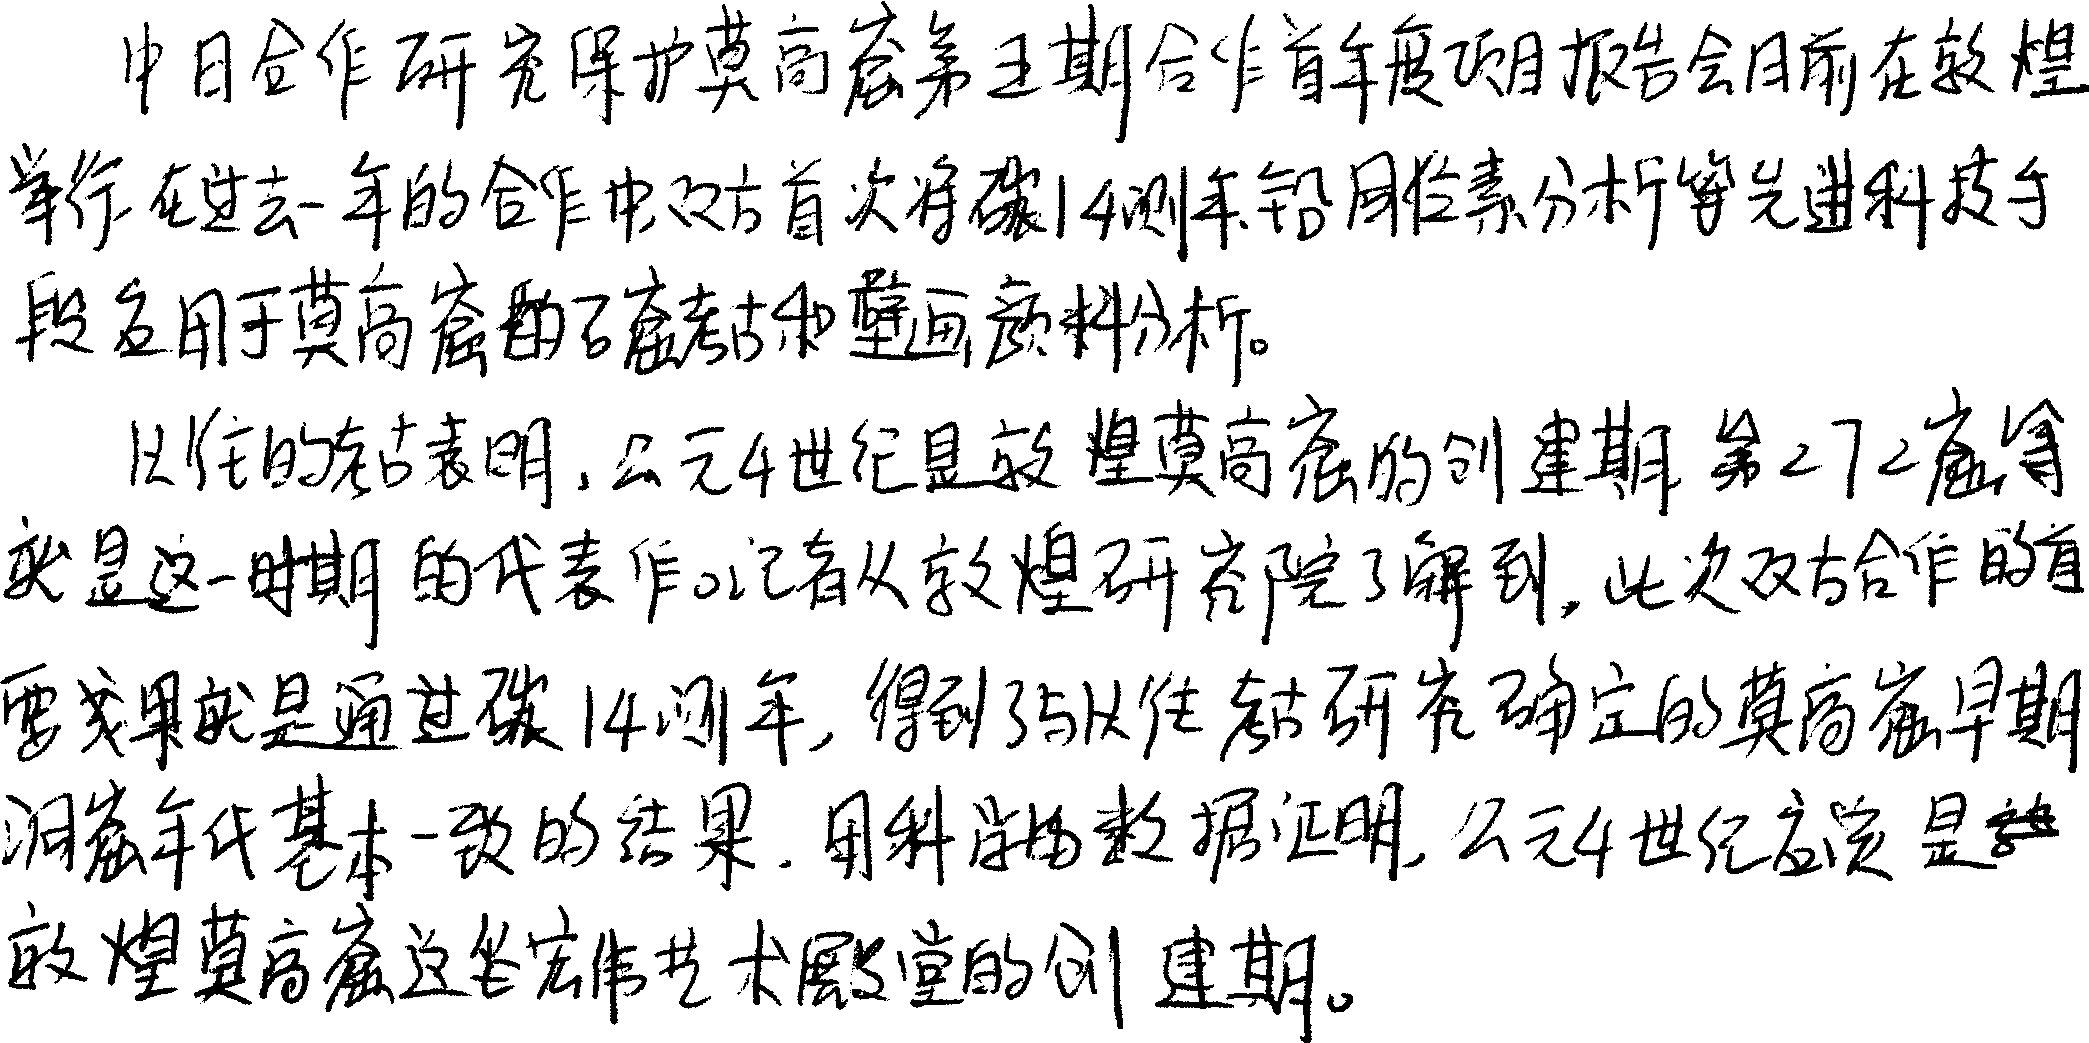 中日合作研究保护莫高窟第五期合作首年度项目报告会日前在敦煌
举行.在过去一年的合作中双方首次将碳14测年、铅同位素分析等先进科技手
段应用于莫高窟的石窟考古和壁画颜料分析。
以往的考古表明,公元4世纪是敦煌莫高窟的创建期.第272窟等
就是这一时期的代表作。记者从敦煌研究院了解到,此次双方合作的首
要成果就是通过碳14测年,得到了与以往考古研究确定的莫高窟早期
洞窟年代基本一致的结果.用科学的数据证明,公元4世纪应该是
敦煌莫高窟这座宏伟艺术殿堂的创建期。